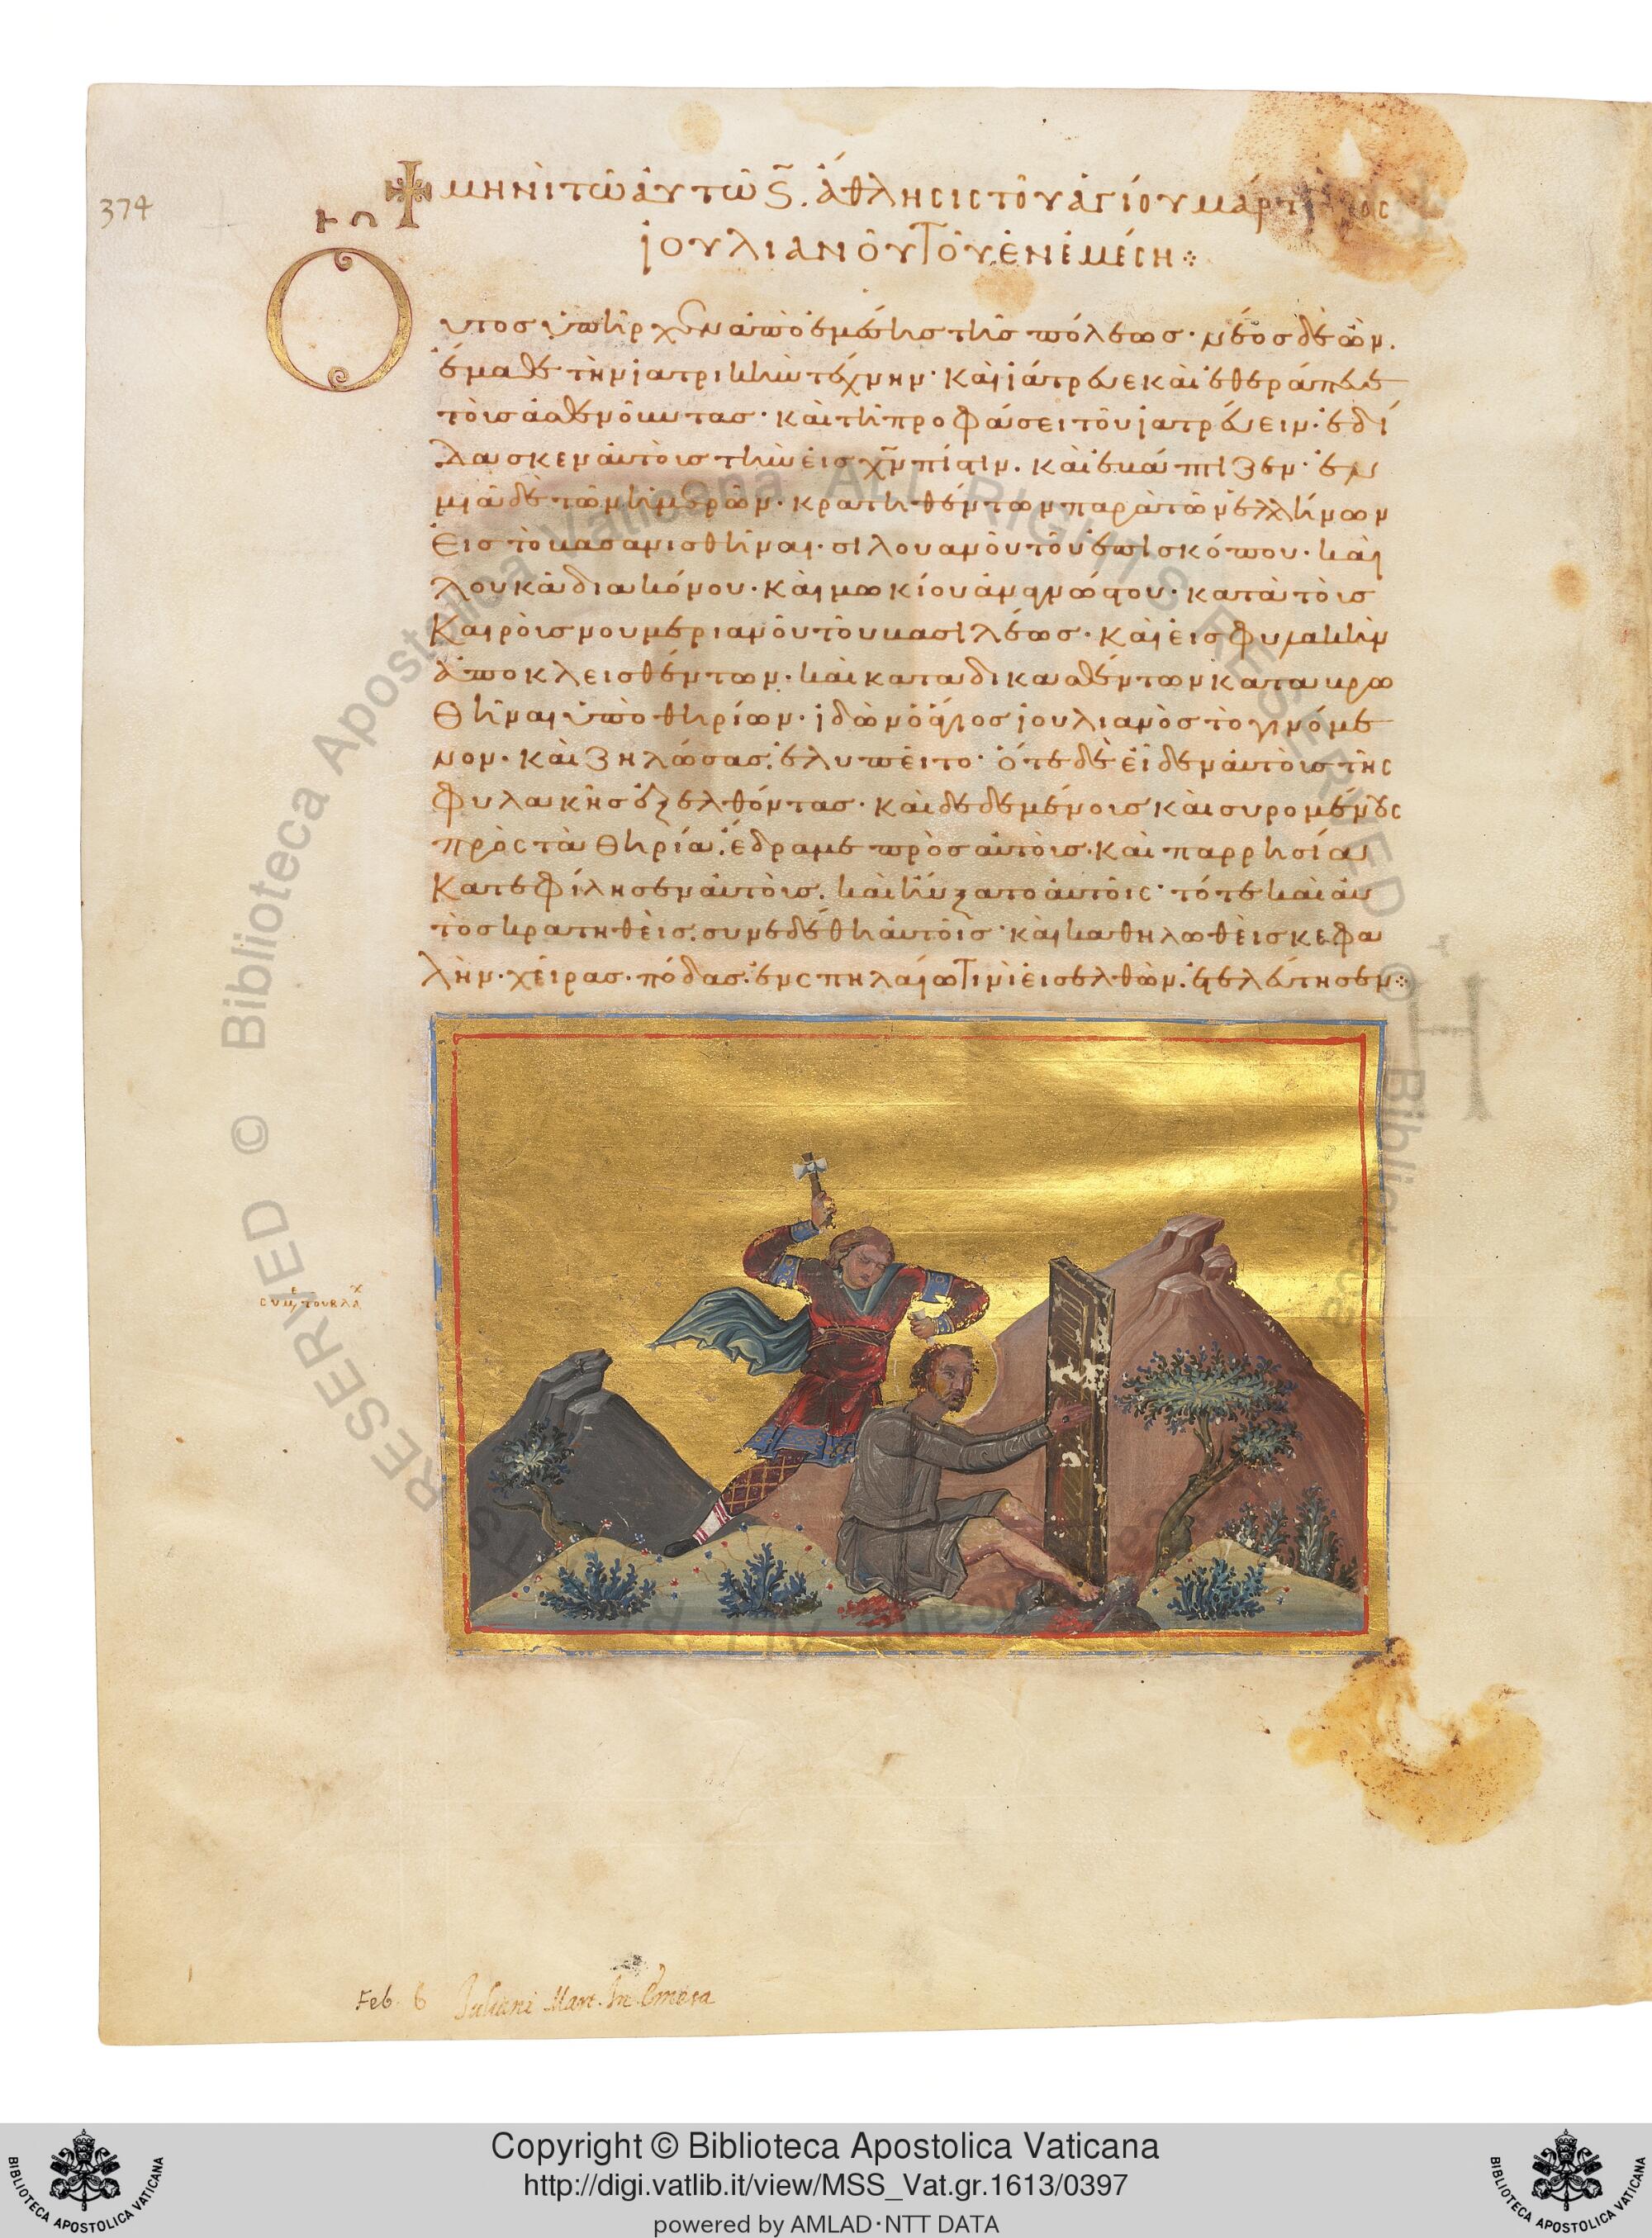 374
Τῷ
✢ ΜΗΝῚ ΤΩ͂ ἈΥΤΩ͂ Ϛ. ἌΘΛΗCΙC ΤΟΥ͂ ἉΓΊΟΥ ΜΆΡΤ ΟC
ἸΟΥΛΙΑΝΟΥ͂ ΤΟΥ͂ ἘΝ ἘΜΈCΗ ⁘
Οὗτος ὑπῆρχεν ἀπὸ ἐμέσης τῆς πόλεως· νέος δὲ ὢν.
ἔμαθε τὴν ἰατρικὴν τέχνην· καὶ ἰάτρευε καὶ ἐθεράπευε
τοὺς ἀσθενοῦντας· καὶ τῇ προφάσει τοῦ ἰατρεύειν· ἐδί
δασκεν αὐτοὺς τὴν εἰς χν πίστιν. καὶ ἐβάπτιζεν· ἐν
μιᾷ δὲ τῶν ἡμερῶν· κρατηθέντων παρὰ τῶν ἑλλήνων
εἰς τὸ βασανισθῆναι· σιλουανοῦ τοῦ ἐπισκόπου· καὶ
λουκᾶ διακόνου· καὶ μωκίου ἀναγνώστου· κατὰ τοὺς
καιροὺς νουμεριανοῦ τοῦ βασιλέως· καὶ εἰς φυλακὴν
ἀποκλεισθέντων· καὶ καταδικασθέντων καταβρω
θῆναι ὑπὸ θηρίων· ἰδὼν ὁ ἅγιος ἰουλιανὸς τὸ γινόμε
νον· καὶ ζηλώσας. ἐλυπεῖτο· ὅτε δὲ εἶδεν αὐτοὺς τῆς
φυλακῆς ἐξελθόντας· καὶ δεδεμένους καὶ συρομένους
πρὸς τὰ θηρία. ἔδραμε πρὸς αὐτοὺς· καὶ παρρησίᾳ
κατεφίλησεν αὐτοὺς. καὶ ηὔξατο αὐτοῖς· τότε καὶ αὐ
τὸς κρατηθεὶς. συνεδέθη αὐτοῖς· καὶ καθηλωθεὶς κεφα
λὴν· χεῖρας· πόδας. ἐν σπηλαίῳ τινὶ εἰσελθὼν. ἐτελεύτησεν ⁘
CΥΜε ΤΟΥ ΒΛΑχ
Feb. 6 Juliani Mart. In Emesa
Copyright © Biblioteca Apostolica Vaticana
http://digi.vatlib.it/view/MSS_Vat.gr.1613/0397
powered by AMLAD·NTT DATA
BIBLIOTECA APOSTOLICA VATICANA
BIBLIOTECA APOSTOLICA VATICANA